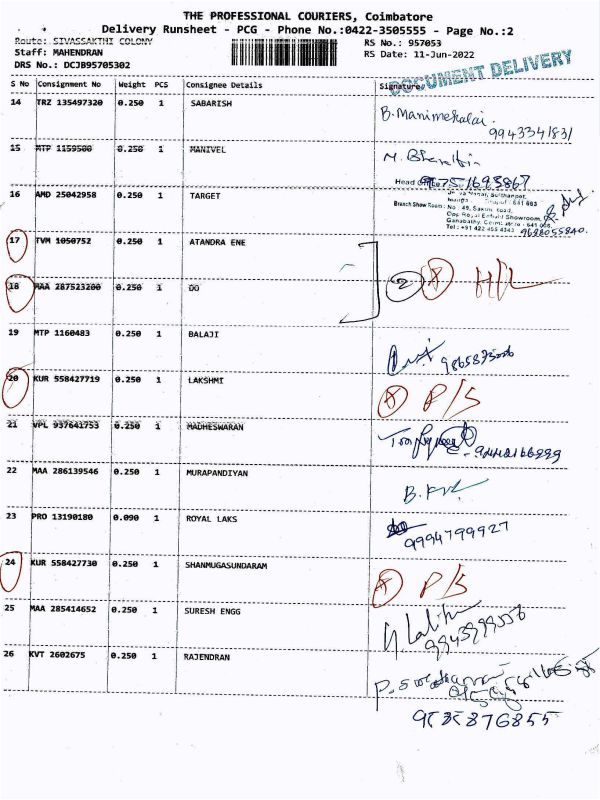 THE PROFESSIONAL COURIERS, Coimbatore
Delivery Runsheet - PCG - Phone No.:0422-3505555 - Page No.:2
Route: SIVASSAKTHI COLONY RS No.: 957053
Staff: MAHENDRAN RS Date: 11-Jun-2022
DRS No.: DCJB95705302
DOCUMENT DELIVERY
S No Consignment No Weight PCS Consignee Details Signature
14 TRZ 135497320 0.250 1 SABARISH B. Manimekalai.
9943341831
15 MTP 1159500 0.250 1 MANIVEL
9751693867
Head Office
16 AMD 25042958 0.250 1 TARGET
Branch Show Room: No : 49, Sakthi Road,
Opp. Royal Enfield Showroom,
Tel : +91 422 455 4343
17 TVM 1050752 0.250 1 ATANDRA ENE
18 MAA 287523200 0.250 1 DO 2
19 MTP 1160483 0.250 1 BALAJI
20 KUR 558427719 0.250 1 LAKSHMI P/S
21 VPL 937641753 0.250 1 MADHESWARAN
22 MAA 286139546 0.250 1 MURAPANDIYAN
23 PRO 13190180 0.090 1 ROYAL LAKS
9994799927
24 KUR 558427730 0.250 1 SHANMUGASUNDARAM P/S
25 MAA 285414652 0.250 1 SURESH ENGG
26 KVT 2602675 0.250 1 RAJENDRAN